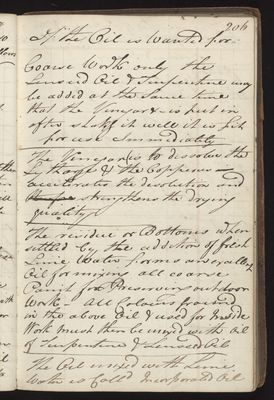 206
If the Oil is Wanted for
Coarse Work only the
Linseed Oil & Turpentine may
be added at the same time
that the Vinegar is put in
after shake it well it is fit
for use Immediately
The Vinegar is to dissolve the
Lytharge & the Copperas
accelerates the desolution and
strengthens the drying
quality
The residue or Bottoms when
settled by the addition of fresh
Lime Water forms another
Oil for mixing all coarse
Paint for Preserving outdoor
Work — All Colours ground
in the above Oil & used for Inside
Work must then be mixed with Oil
of Turpentine & Linseed Oil
The Oil mixed with Lime
Water is Called Incorporated Oil